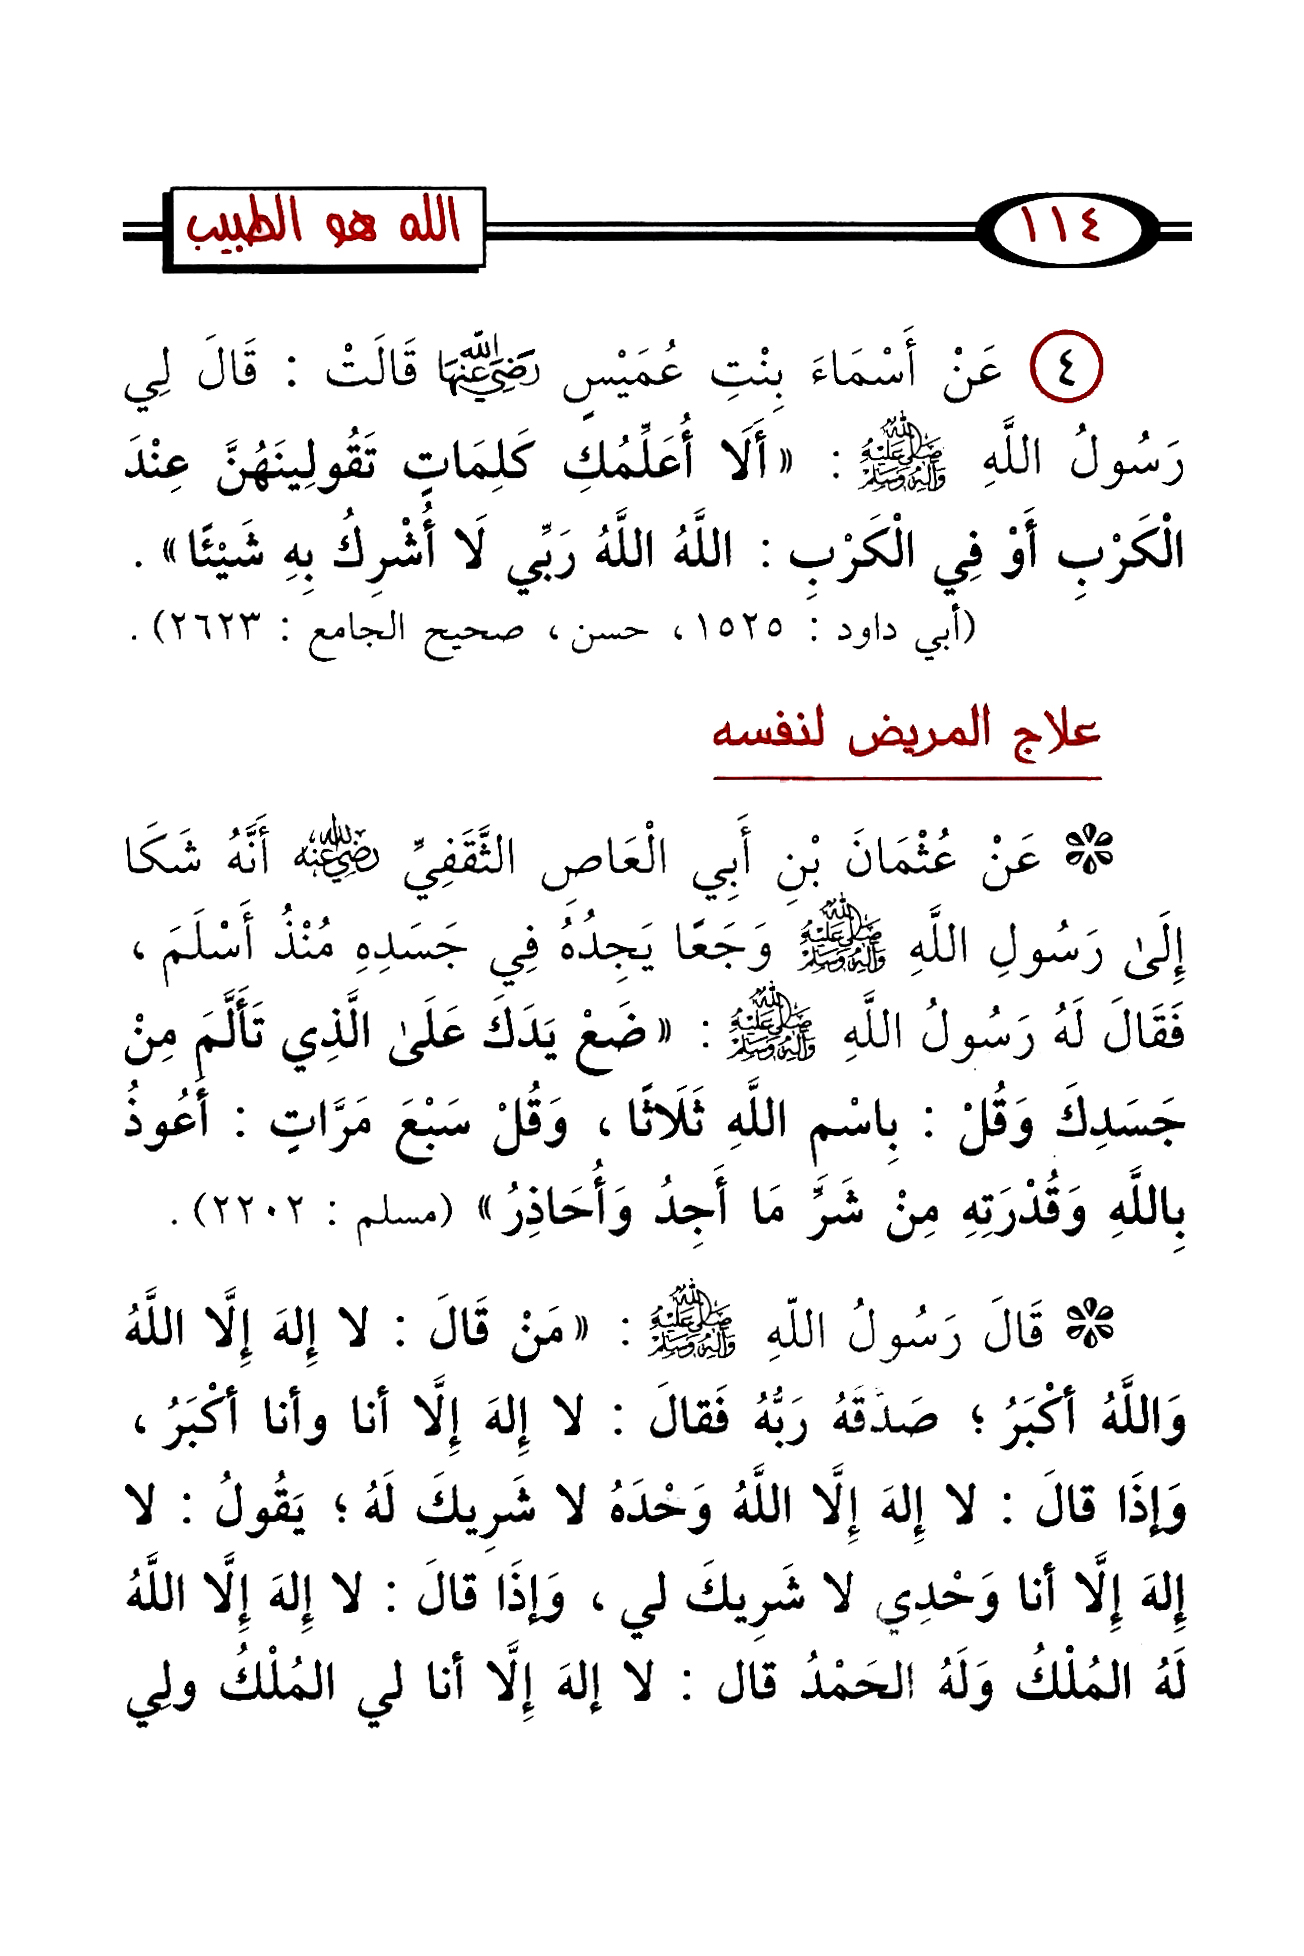 ١١٤
الله هو الطبيب
٤ عَنْ أَسْمَاءَ بِنْتِ عُمَيْسٍ رَضِيَ اللَّهُ عَنْهَا قَالَتْ : قَالَ لِي
رَسُولُ اللَّهِ ﷺ : «أَلَا أُعَلِّمُكِ كَلِمَاتٍ تَقُولِينَهُنَّ عِنْدَ
الْكَرْبِ أَوْ فِي الْكَرْبِ : اللَّهُ اللَّهُ رَبِّي لَا أُشْرِكُ بِهِ شَيْئًا» .
(أبي داود : ١٥٢٥، حسن، صحيح الجامع : ٢٦٢٣) .
علاج المريض لنفسه
❉ عَنْ عُثْمَانَ بْنِ أَبِي الْعَاصِ الثَّقَفِيِّ رَضِيَ اللَّهُ عَنْهُ أَنَّهُ شَكَا
إِلَىٰ رَسُولِ اللَّهِ ﷺ وَجَعًا يَجِدُهُ فِي جَسَدِهِ مُنْذُ أَسْلَمَ ،
فَقَالَ لَهُ رَسُولُ اللَّهِ ﷺ : «ضَعْ يَدَكَ عَلَىٰ الَّذِي تَأَلَّمَ مِنْ
جَسَدِكَ وَقُلْ : بِاسْمِ اللَّهِ ثَلَاثًا ، وَقُلْ سَبْعَ مَرَّاتٍ : أَعُوذُ
بِاللَّهِ وَقُدْرَتِهِ مِنْ شَرَِّ مَا أَجِدُ وَأُحَاذِرُ» (مسلم : ٢٢٠٢) .
❉ قَالَ رَسُولُ اللّهِ ﷺ : «مَنْ قَالَ : لا إِلهَ إِلَّا اللَّهُ
وَاللَّهُ أكْبَرُ ؛ صَدَقَهُ رَبُّهُ فَقالَ : لا إِلهَ إِلَّا أنا وأنا أكْبَرُ ،
وَإذَا قالَ : لا إِلهَ إِلَّا اللَّهُ وَحْدَهُ لا شَرِيكَ لَهُ ؛ يَقُولُ : لا
إِلهَ إِلَّا أنا وَحْدِي لا شَرِيكَ لي ، وَإذَا قالَ : لا إِلهَ إِلَّا اللَّهُ
لَهُ المُلْكُ وَلَهُ الحَمْدُ قال : لا إلهَ إِلَّا أنا لي المُلْكُ ولِي